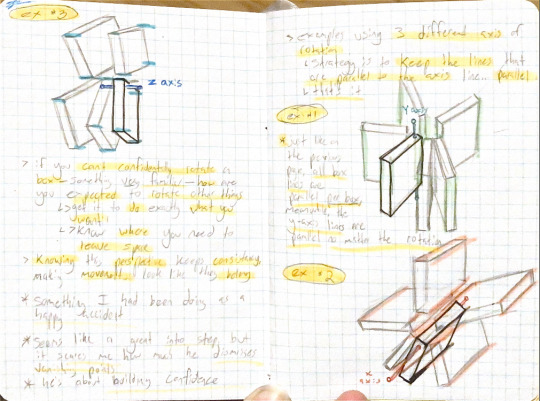 ex #3
z axis
> if you can't confidently rotate a
box - something very familiar - how are
you expected to rotate other things
↳ get it to do exactly what you
want!
↳ know where you need to
leave space
> Knowing this perspective keeps consistency,
making movement look like they belong
* Something I had been doing as a
happy accident
* Seems like a great into step, but
it scares me how much he dismisses
vanishing points
* he's about building confidence
> examples using 3 different axis of
rotation
↳ strategy is to keep the lines that
are parallel to the axis line.. parallel
↳ that's it
ex #1
Y axis
* just like in
the previous
page, all box
lines are
parallel per box,
meanwhile the
y-axis lines are
parallel no matter the rotation
ex #2
x
axis